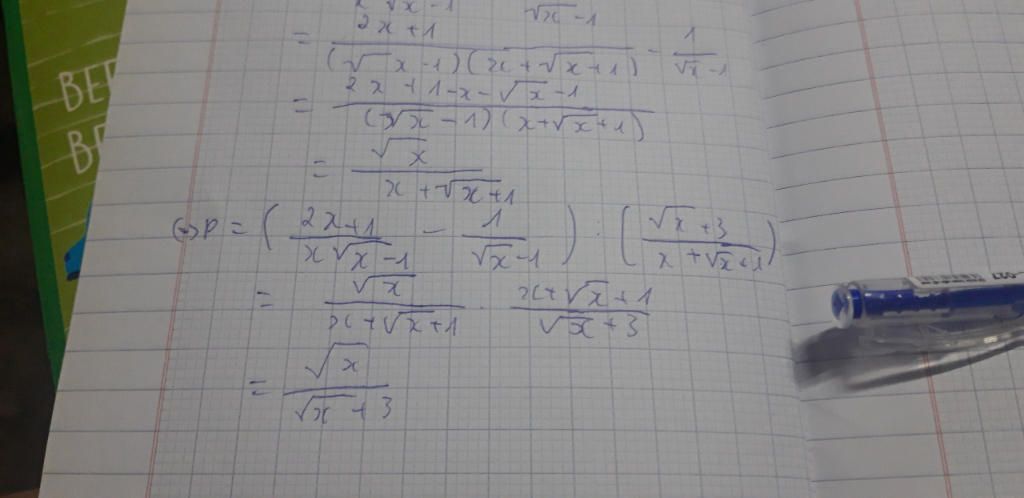 x√x-1 √x-1
= 2x+1 / (√x-1)(x+√x+1) - 1 / √x-1
= 2x+1-x-√x-1 / (√x-1)(x+√x+1)
= √x / x+√x+1
(=) P = ( 2x+1 / x√x-1 - 1 / √x-1 ) : ( √x+3 / x+√x+1 )
= √x / x+√x+1 . x+√x+1 / √x+3
= √x / √x+3
027